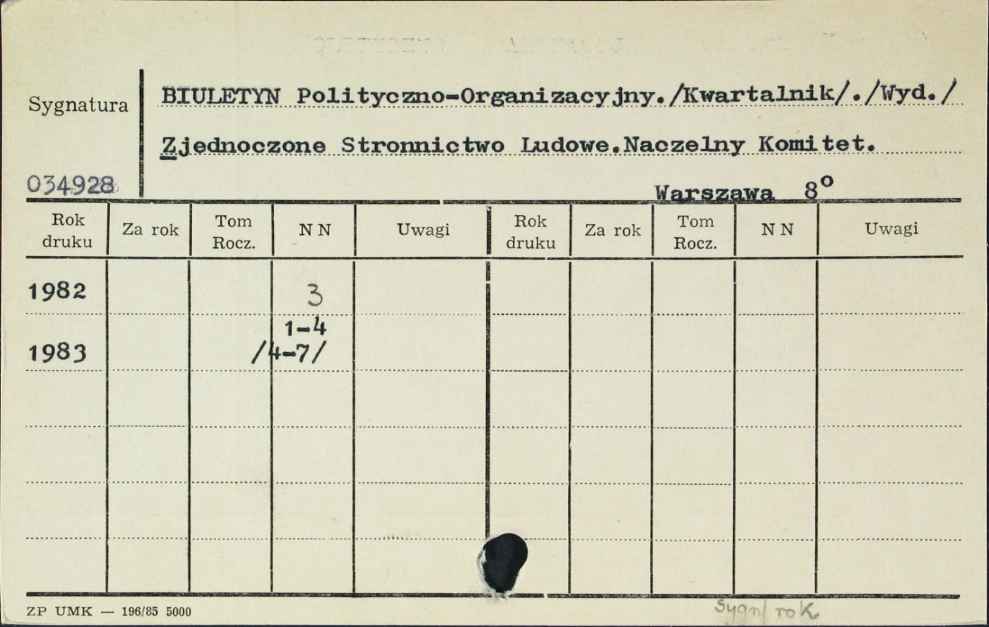 Sygnatura
BIULETYN Polityczno-Organizacyjny./Kwartalnik/./Wyd./
Zjednoczone Stronnictwo Ludowe.Naczelny Komitet.
034928
Warszawa 8º
Rok druku Za rok Tom Rocz. N N Uwagi Rok druku Za rok Tom Rocz. N N Uwagi
1982 3
1-4
1983 /4-7/
ZP UMK — 196/85 5000
Sygn/ rok